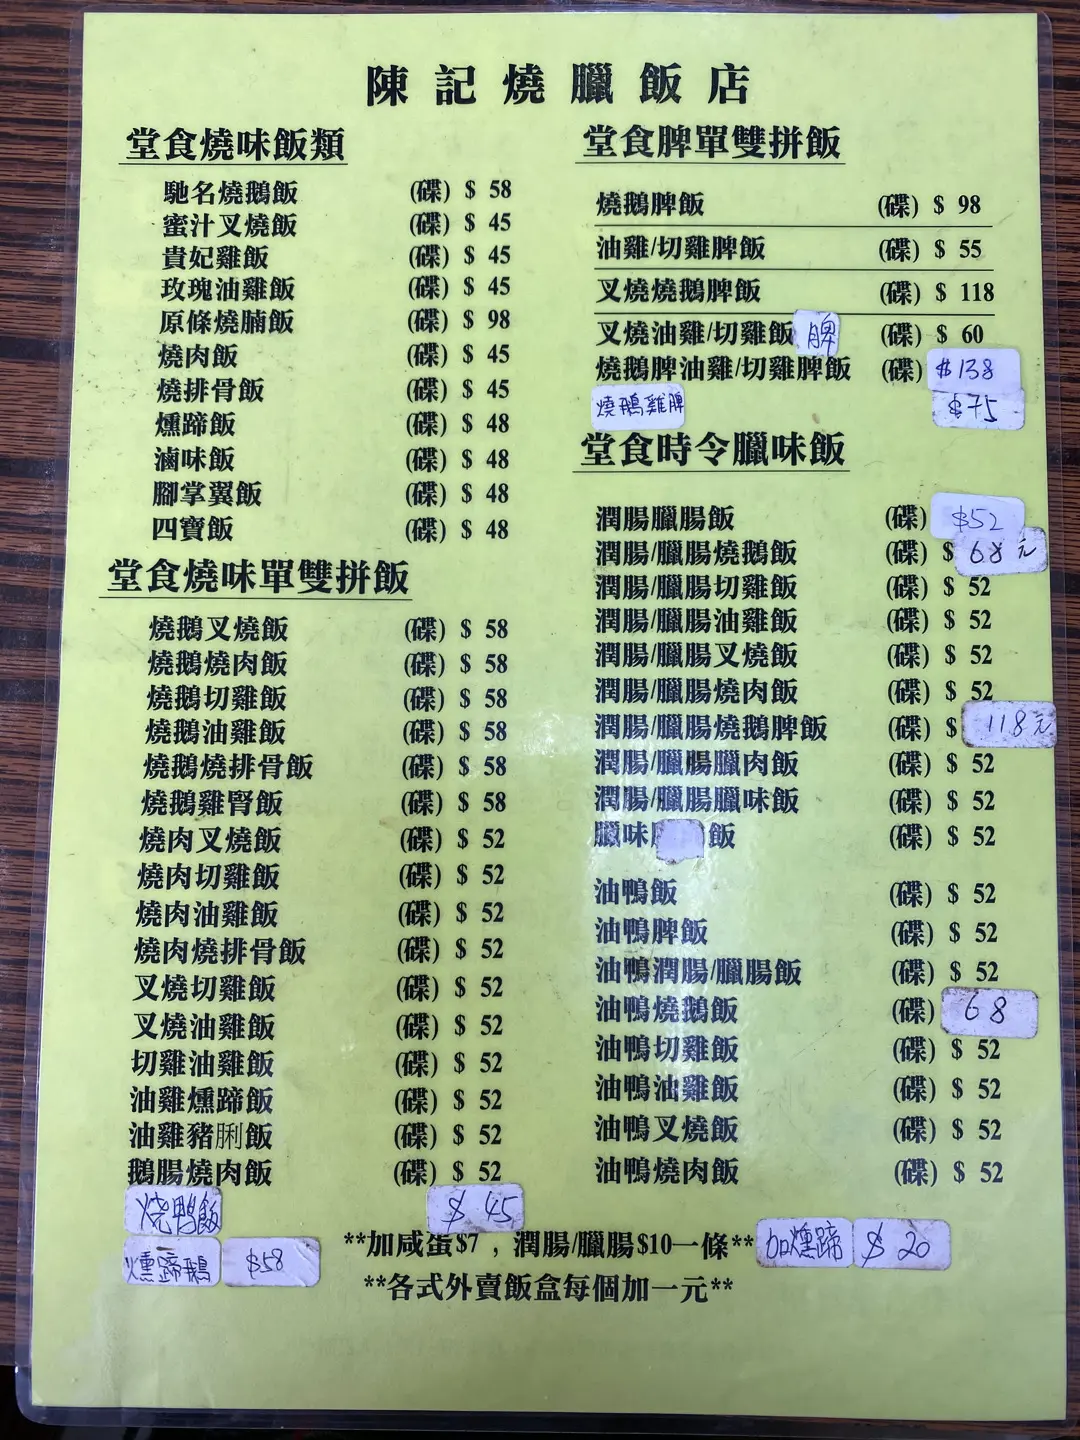 陳記燒臘飯店
堂食燒味飯類
馳名燒鵝飯 (碟) $ 58
蜜汁叉燒飯 (碟) $ 45
貴妃雞飯 (碟) $ 45
玫瑰油雞飯 (碟) $ 45
原條燒腩飯 (碟) $ 98
燒肉飯 (碟) $ 45
燒排骨飯 (碟) $ 45
燻蹄飯 (碟) $ 48
滷味飯 (碟) $ 48
腳掌翼飯 (碟) $ 48
四寶飯 (碟) $ 48
堂食燒味單雙拼飯
燒鵝叉燒飯 (碟) $ 58
燒鵝燒肉飯 (碟) $ 58
燒鵝切雞飯 (碟) $ 58
燒鵝油雞飯 (碟) $ 58
燒鵝燒排骨飯 (碟) $ 58
燒鵝雞腎飯 (碟) $ 58
燒肉叉燒飯 (碟) $ 52
燒肉切雞飯 (碟) $ 52
燒肉油雞飯 (碟) $ 52
燒肉燒排骨飯 (碟) $ 52
叉燒切雞飯 (碟) $ 52
叉燒油雞飯 (碟) $ 52
切雞油雞飯 (碟) $ 52
油雞燻蹄飯 (碟) $ 52
油雞豬脷飯 (碟) $ 52
鵝腸燒肉飯 (碟) $ 52
烧鸭飯 $ 45
燻蹄鵝 $58
堂食脾單雙拼飯
燒鵝脾飯 (碟) $ 98
油雞/切雞脾飯 (碟) $ 55
叉燒燒鵝脾飯 (碟) $ 118
叉燒油雞/切雞飯 脾 (碟) $ 60
燒鵝脾油雞/切雞脾飯 (碟) $138
燒鵝雞脾 $75
堂食時令臘味飯
潤腸臘腸飯 (碟) $52
潤腸/臘腸燒鵝飯 (碟) $ 68元
潤腸/臘腸切雞飯 (碟) $ 52
潤腸/臘腸油雞飯 (碟) $ 52
潤腸/臘腸叉燒飯 (碟) $ 52
潤腸/臘腸燒肉飯 (碟) $ 52
潤腸/臘腸燒鵝脾飯 (碟) $ 118元
潤腸/臘腸臘肉飯 (碟) $ 52
潤腸/臘腸臘味飯 (碟) $ 52
臘味 飯 (碟) $ 52
油鴨飯 (碟) $ 52
油鴨脾飯 (碟) $ 52
油鴨潤腸/臘腸飯 (碟) $ 52
油鴨燒鵝飯 (碟) 68
油鴨切雞飯 (碟) $ 52
油鴨油雞飯 (碟) $ 52
油鴨叉燒飯 (碟) $ 52
油鴨燒肉飯 (碟) $ 52
**加咸蛋$7，潤腸/臘腸$10一條** 加燻蹄 $ 20
**各式外賣飯盒每個加一元**